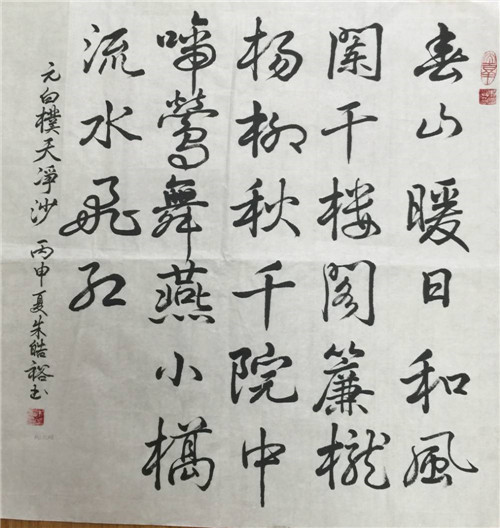 春山暖日和風
阑干楼阁簾櫳
杨柳秋千院中
啼鶯舞燕小橋
流水飛红
元白樸天淨沙 丙申夏朱皓裕书